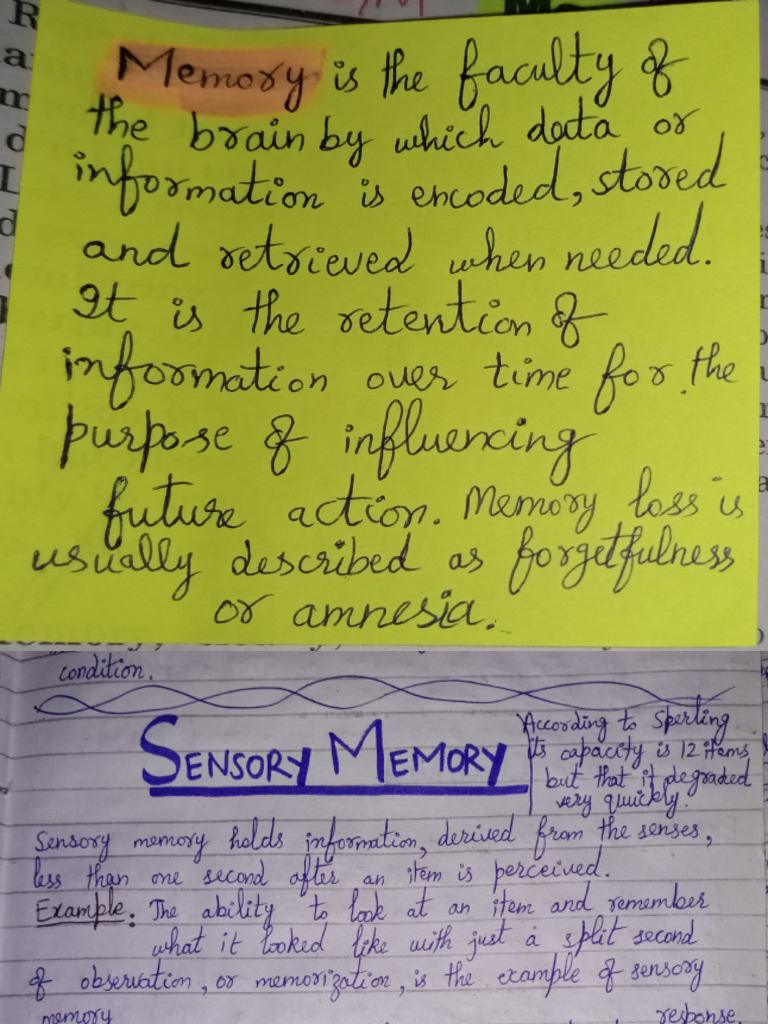 Memory is the faculty of
the brain by which data or
information is encoded, stored
and retrieved when needed.
It is the retention of
information over time for the
purpose of influencing
future action. Memory loss is
usually described as forgetfulness
or amnesia.
condition.
SENSORY MEMORY
According to Sperling
its capacity is 12 items
but that it degraded
very quickly.
Sensory memory holds information, derived from the senses,
less than one second after an item is perceived.
Example: The ability to look at an item and remember
what it looked like with just a split second
of observation, or memorization, is the example of sensory
memory response.